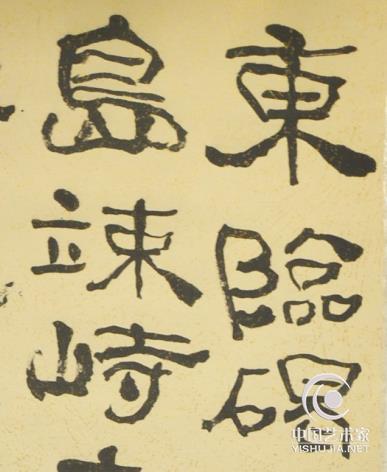 東臨碣
島竦峙
中国艺术家
YISHUJIA.NET